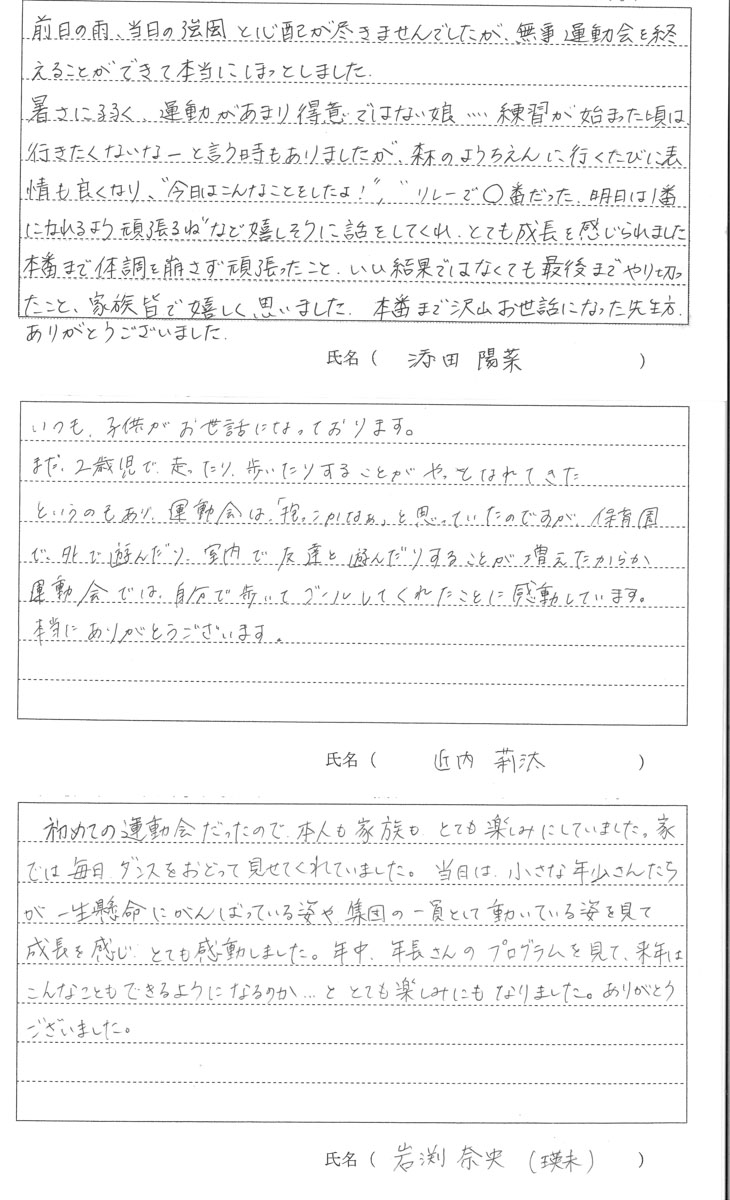 前日の雨、当日の強風と心配が尽きませんでしたが、無事運動会を終
えることができて本当にほっとしました.
暑さに弱く、運動があまり得意ではない娘…. 練習が始まった頃は、
行きたくないなーと言う時もありましたが、森のようちえんに行くたびに表
情も良くなり、"今日はこんなことをしたよ!", "リレーで〇番だった. 明日は1番
になれるよう頑張るね"など嬉しそうに話をしてくれ、とても成長を感じられました
本番まで体調を崩さず頑張ったこと、いい結果ではなくても最後までやり切っ
たこと、家族皆で嬉しく思いました. 本番まで沢山お世話になった先生方.
ありがとうございました.
氏名 ( 添田 陽菜 )
いつも、子供がお世話になっております。
まだ、2歳児で、走ったり、歩いたりすることがやっとなれてきた
というのもあり、運動会は、「抱っこかなぁ」と思っていたのですが、保育園
で、外で遊んだり、室内で友達と遊んだりすることが増えたからか
運動会では、自分で歩いてゴールしてくれたことに感動しています。
本当にありがとうございます。
氏名 ( 近内 莉汰 )
初めての運動会だったので、本人も家族も、とても楽しみにしていました。家
では毎日、ダンスをおどって見せてくれていました。当日は、小さな年少さんたち
が一生懸命にがんばっている姿や集団の一員として動いている姿を見て
成長を感じ、とても感動しました。年中、年長さんのプログラムを見て、来年は
こんなこともできるようになるのか…ととても楽しみにもなりました。ありがとう
ございました。
氏名 ( 岩渕 奈央 (瑛未) )